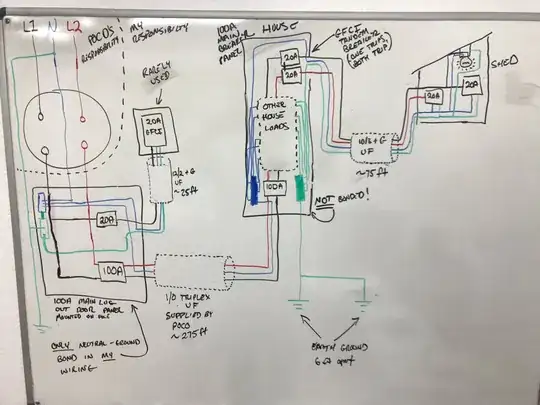 L1 N L2
POCO'S
RESPONSIBILITY
MY
RESPONSIBILITY
RARELY
USED
20A
GFCI
12/2+G
UF
~25ft
20A
100A
100A MAIN LUG
OUTDOOR PANEL
MOUNTED ON POLE
ONLY NEUTRAL-GROUND
BOND IN MY
WIRING
1/0 TRIPLEX
UF
SUPPLIED BY
POCO
~275ft
100A
MAIN
BREAKER
PANEL
HOUSE
20A
20A
OTHER
HOUSE
LOADS
100A
NOT BONDED!
GFCI
TANDEM
BREAKER
(ONE TRIPS,
BOTH TRIP)
10/2+G
UF
~75ft
20A
20A
SHED
EARTH GROUND
6 ft apart